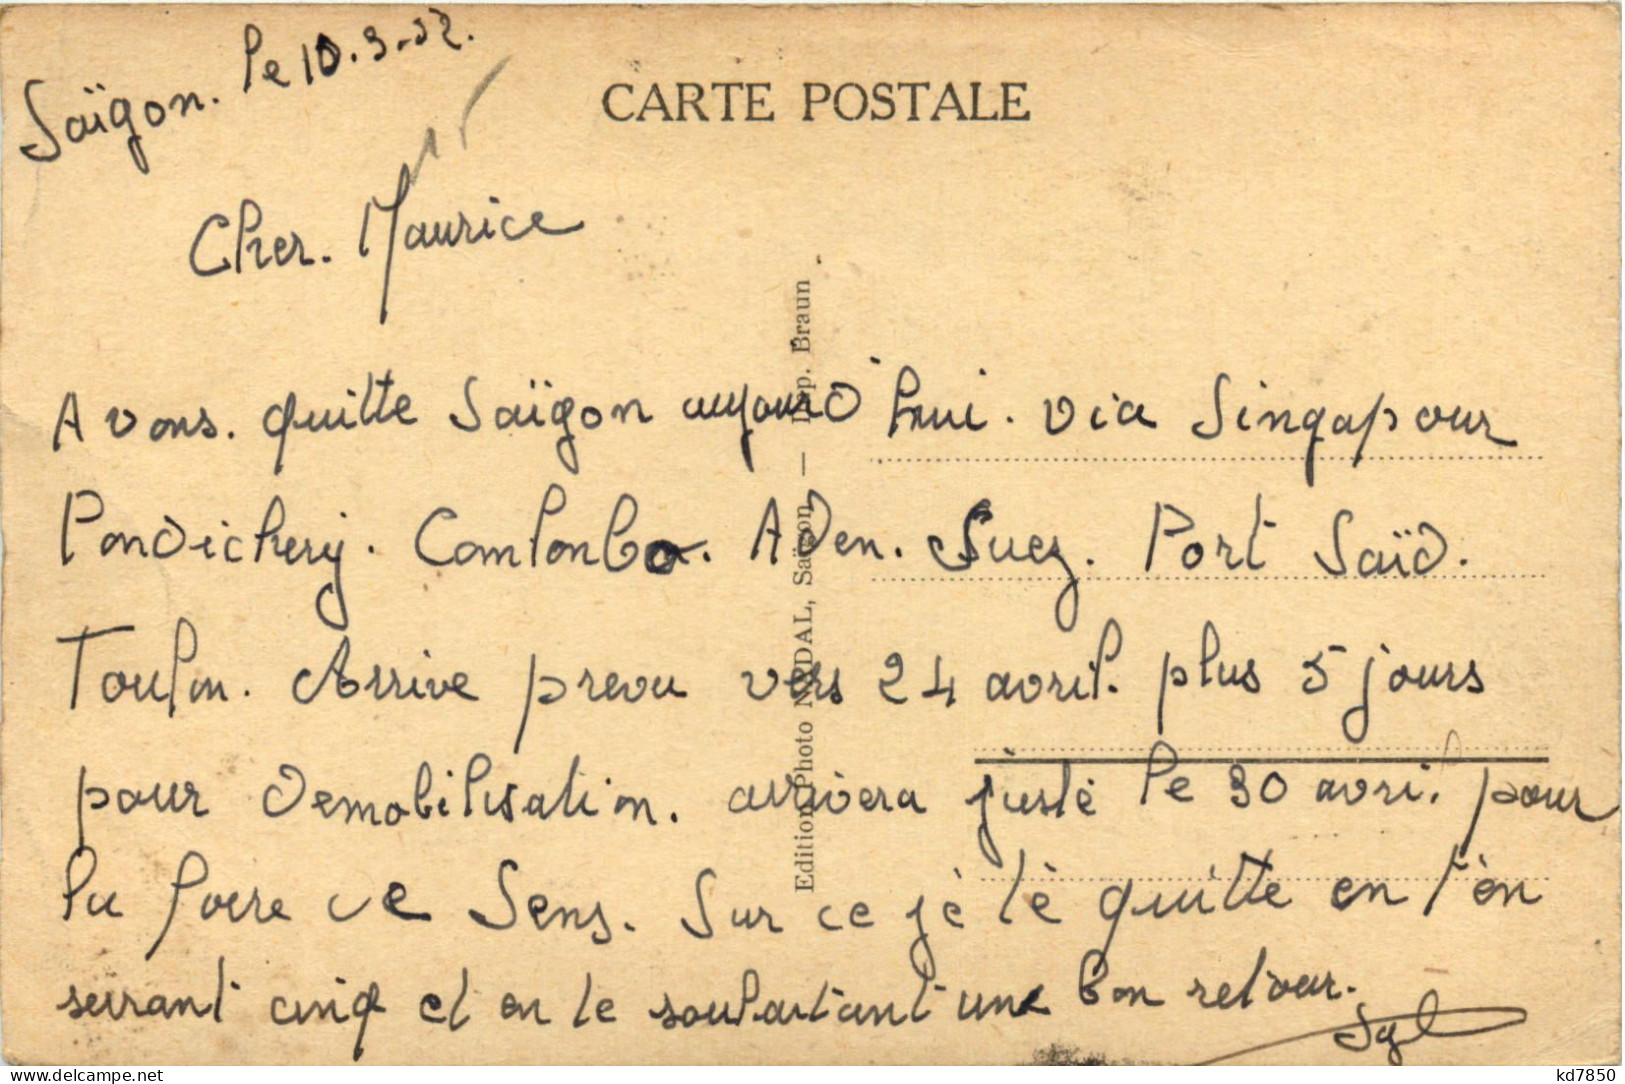 Saïgon. le 10.3.52.
CARTE POSTALE
Cher. Maurice
Avons. quitte Saïgon aujourd'hui. via Singapour
Pondichery. Comlombo. Aden. Suez. Port Saïd.
Toulon. Arrive prevu vers 24 avril. plus 5 jours
pour demobilisation. arrivera juste le 30 avril pour
la foere de Sens. Sur ce je te quitte en t'en
serrant cinq et en te souhaitant une bon retour.
Edition Photo NADAL, Saïgon. — Imp. Braun
kd7850